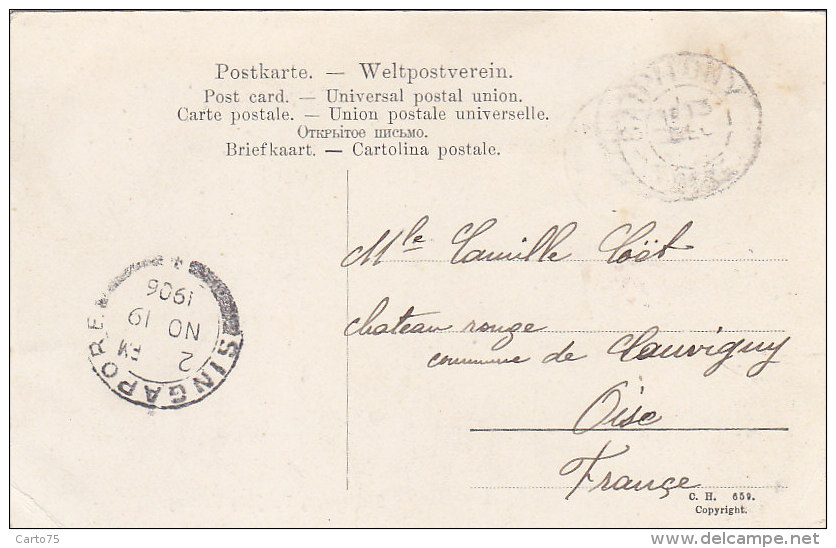 Postkarte. — Weltpostverein.
Post card. — Universal postal union.
Carte postale. — Union postale universelle.
Открытое письмо.
Briefkaart. — Cartolina postale.
Mlle Camille
chateau rouge
commune de Cauvigny
Oise
France
SINGAPORE
2 PM
NO 19
1906
C. H. 659.
Copyright.
Carto75
delcampe.net